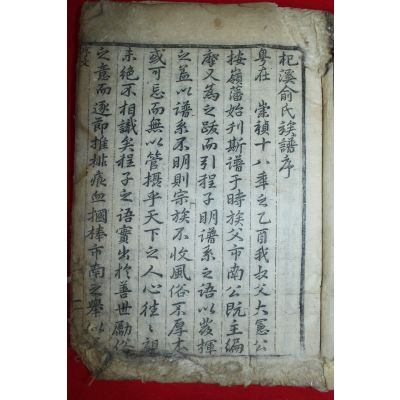 杞溪俞氏族譜序
粤在 崇禎十八年之乙酉我叔父大憲公
按嶺藩始刊斯譜于時族父市南公旣主編
摩又爲之跋而引程子明譜系之語以發揮
之盖以譜系不明則宗族不收風俗不厚本
或可忘而無以管攝乎天下之人心徃〻親
未絶不相識矣程子之語實出於善世勵俗
之意而逐節推排痕血摑棒市南之擧